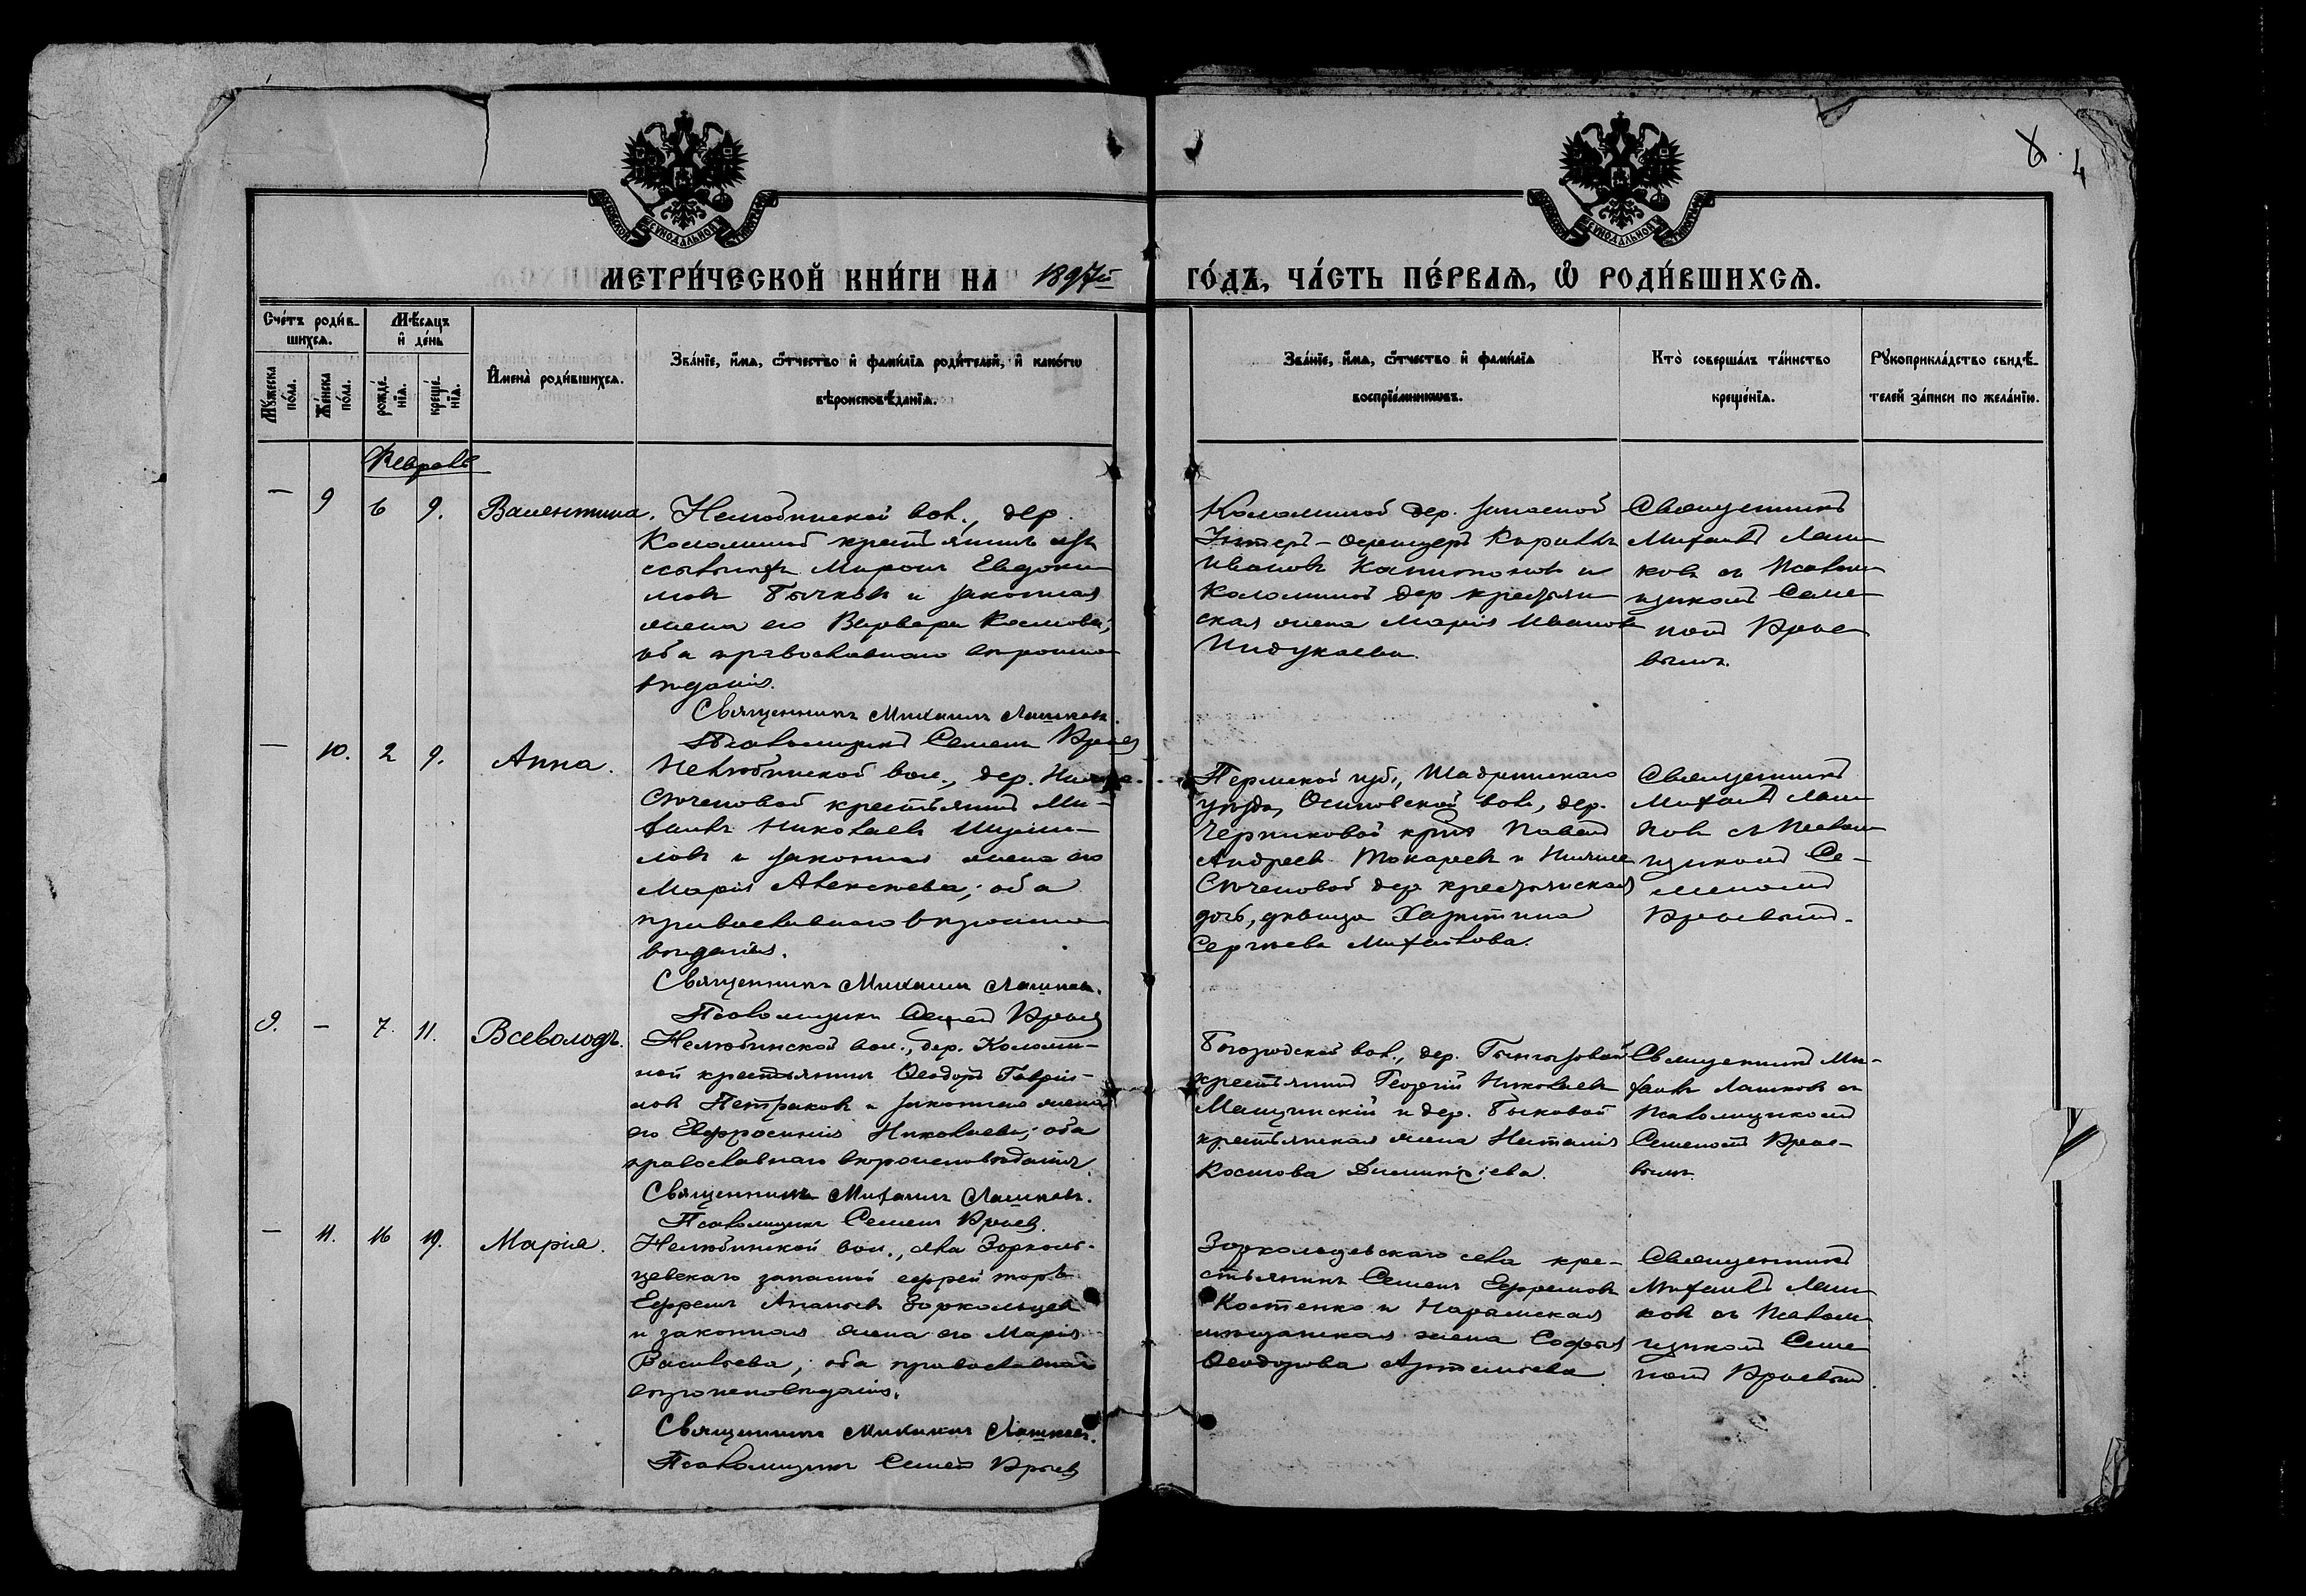 4
МЕТРИ́ЧЕСКОЙ КНИ́ГИ НА 1897й ГО́ДЪ, ЧА́СТЬ ПЕ́РВАѦ, Ѿ РОДИ́ВШИХСѦ.
Сче́тъ роди́в-
шихсѧ.
Мѣ́сѧцъ
и҆ де́нь
Мꙋ́жеска
по́ла.
Же́нска
по́ла.
рожде́-
нїѧ.
креще́-
нїѧ.
И҆мена̀ роди́вшихсѧ.
Зва́нїе, и҆́мѧ, ѻ҆́тчество и҆ фами́лїѧ роди́телей, и҆ како́гѡ
вѣроисповѣ́данїѧ.
Зва́нїе, и҆́мѧ, ѻ҆́тчество и҆ фами́лїѧ
воспрїе́мникѡвъ.
Кто̀ соверша́лъ та́инство
креще́нїѧ.
Рꙋкоприкла́дство свидѣ́-
телей за́писи по жела́нїю.
Февраль
— 9 6 9. Валентина.
Нелюбинской вол., дер.
Коломиной крестьянинъ изъ
ссыльныхъ Миронъ Евдоки-
мовъ Бычковъ и законная
жена его Варвара Космова;
оба православнаго вѣроиспо-
вѣданія.
Священникъ Михаилъ Лашковъ.
Псаломщикъ Семенъ
Коломиной дер. запасной
Унтеръ-офицеръ Кириллъ
Ивановъ Капитоновъ и
Коломиной дер. крестьян-
ская жена Марія Иванова
Священникъ
Михаилъ Лаш-
ковъ съ Псалом-
щикомъ Семе-
номъ
— 10. 2 9. Анна.
Нелюбинской вол., дер.
крестьянинъ Ми-
хаилъ Николаевъ
и законная жена его
Марія Алексѣева; оба
православнаго вѣроиспо-
вѣданія.
Священникъ Михаилъ Лашковъ.
Псаломщикъ Семенъ
Пермской губ., Шадринскаго
уѣзда, Осиновской вол., дер.
Черниковой Павелъ
Андреевъ Токаревъ и
дер. крестьянская
дочь, дѣвица Харитина
Сергѣева Михайлова.
Священникъ
Михаилъ Лаш-
ковъ съ Псалом-
щикомъ Се-
меномъ
9. — 7. 11. Всеволодъ.
Нелюбинской вол., дер. Коломи-
ной крестьянинъ Ѳеодоръ Гаврі-
ловъ Петраковъ и законная жена
его Евфросинія Николаева; оба
православнаго вѣроисповѣданія.
Священникъ Михаилъ Лашковъ.
Псаломщикъ Семенъ
Богородской вол., дер.
крестьянинъ Георгій Николаевъ
и дер. Быковой
крестьянская жена Наталія
Космова Димитріева.
Священникъ Ми-
хаилъ Лашковъ съ
Псаломщикомъ
Семеномъ
— 11. 16 19. Марія.
Нелюбинской вол., села Зоркаль-
цевскаго запасной ефрейторъ
Ефремъ Ананьевъ Зоркальцевъ
и законная жена его Марія
Васильева; оба православнаго
вѣроисповѣданія.
Священникъ Михаилъ Лашковъ.
Псаломщикъ Семенъ
Зоркальцевскаго села кре-
стьянинъ Семенъ Ефремовъ
Костенко и Нарымская
мѣщанская жена Софья
Ѳеодорова Артемьева
Священникъ
Михаилъ Лаш-
ковъ съ Псалом-
щикомъ Семе-
номъ